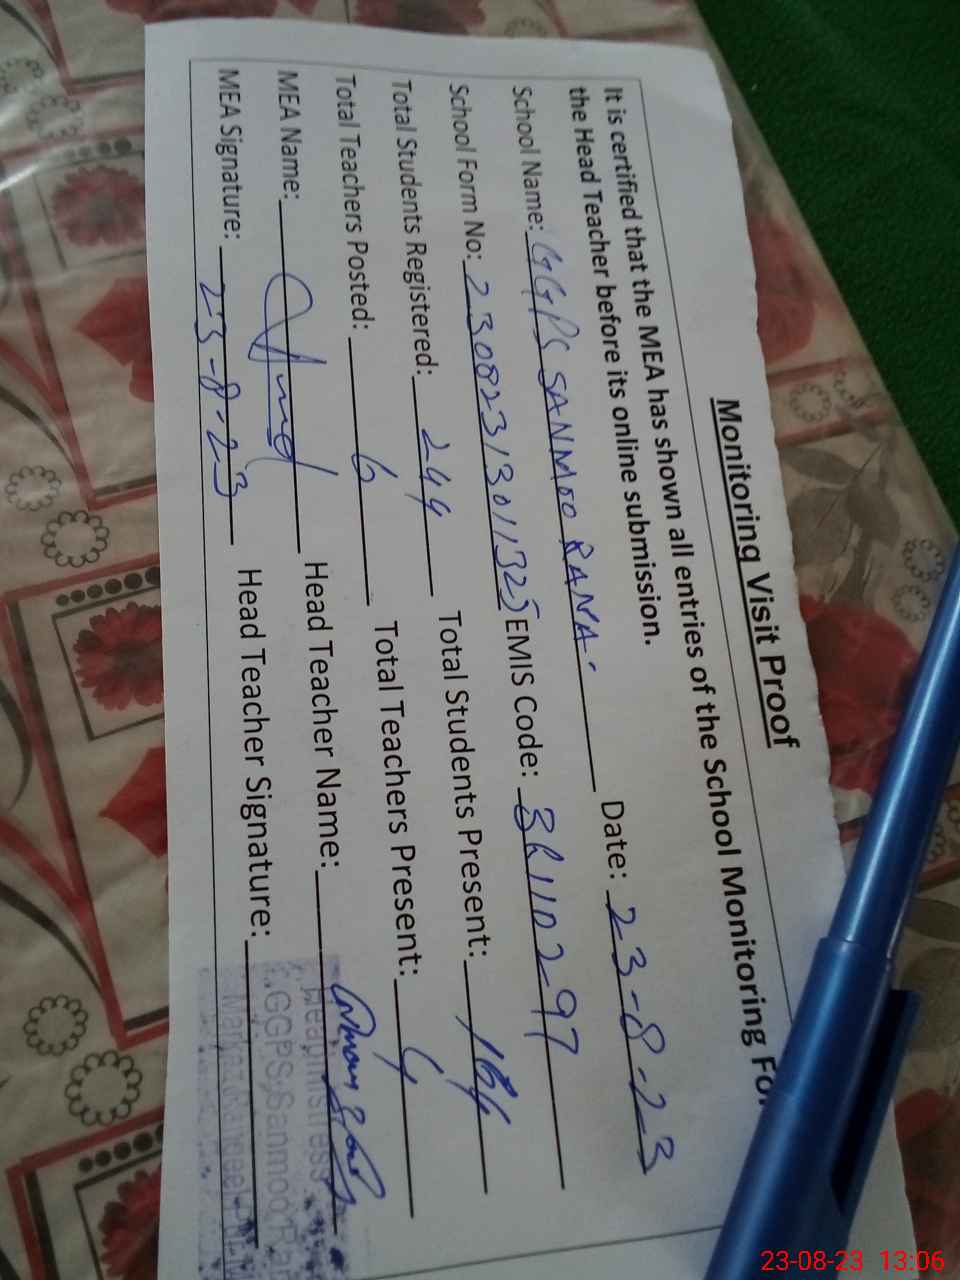 Monitoring Visit Proof
It is certified that the MEA has shown all entries of the School Monitoring For
the Head Teacher before its online submission.
School Name: GGPS SANMOO RANA. Date: 23-8-23
School Form No: 23082313011325 EMIS Code: 10297
Total Students Registered: 244 Total Students Present: 164
Total Teachers Posted: 6 Total Teachers Present: 4
MEA Name: Head Teacher Name:
MEA Signature: 23-8-23 Head Teacher Signature:
Headmistress
GGPS Sanmoo Ran
23-08-23 13:06